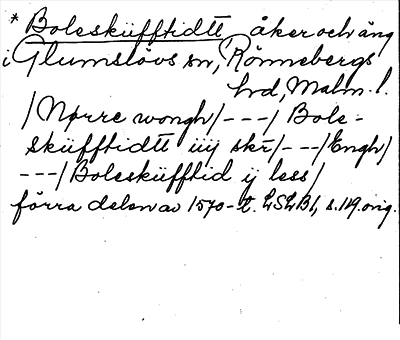 * Boleskiifftidtt åker och äng
i Glumslövs sn, Rönnebergs
hrd, Malm. l.
/Nørre wongh/---/Bole-
skiifftidtt iiij skr/---/Engh/
---/Boleskiifftid ij less/
förra delen av 1570-t. LSLB1, s. 119. orig.